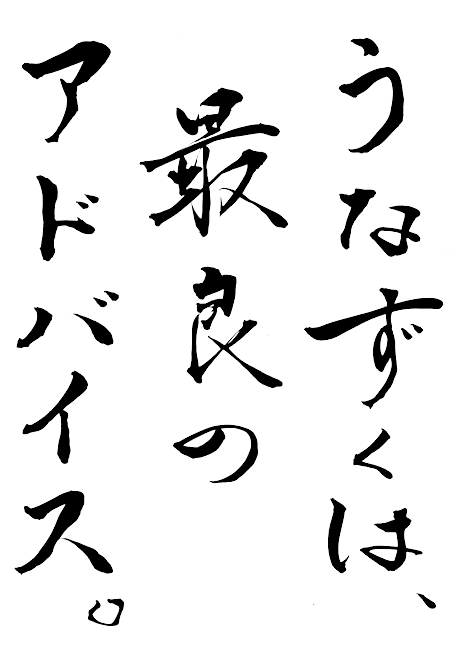 うなずくは、
最良の
アドバイス。